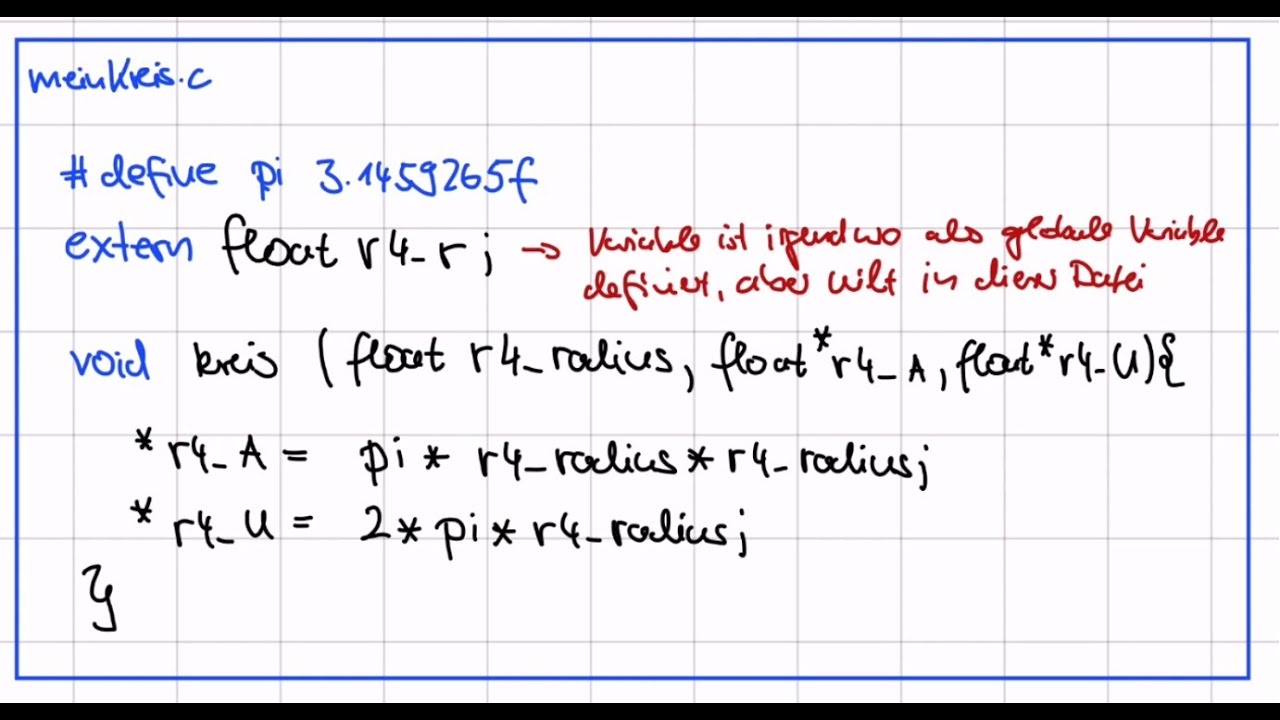 meinKreis.c
# define pi 3.1459265f
extern float r4_r; → Variable ist irgendwo als globale Variable
definiert, aber nicht in dieser Datei
void kreis (float r4_radius, float* r4_A, float* r4_U){
*r4_A = pi * r4_radius * r4_radius;
*r4_U = 2 * pi * r4_radius;
}